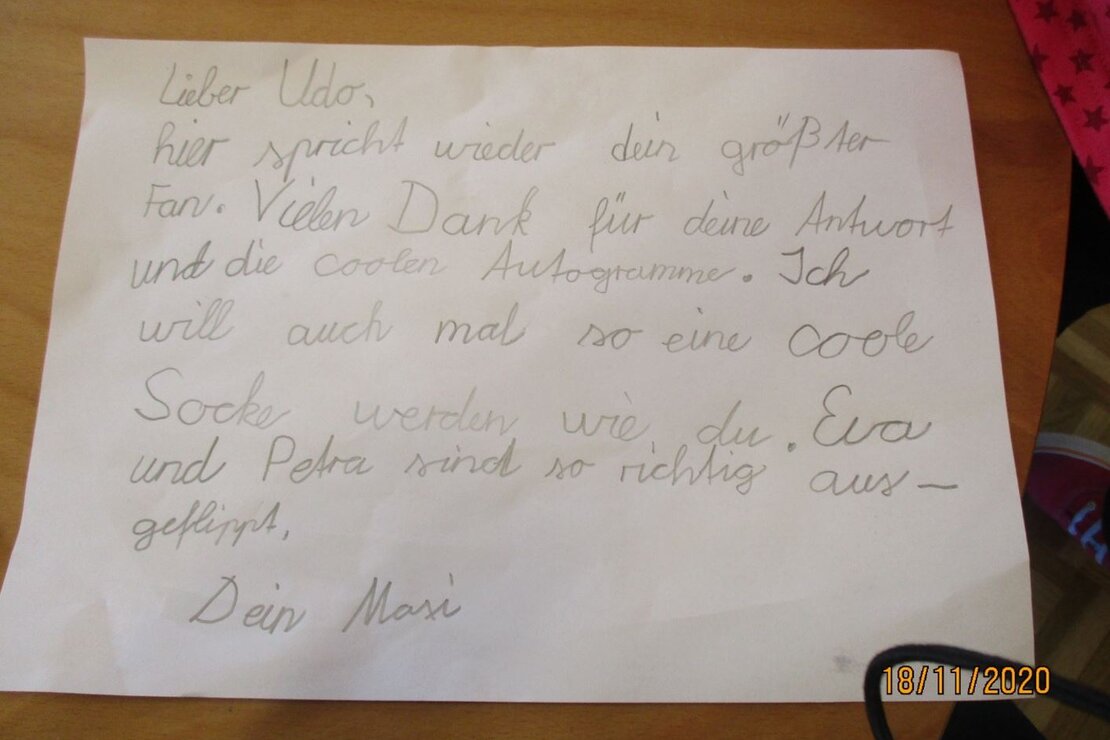 Lieber Udo,
hier spricht wieder dein größter
Fan. Vielen Dank für deine Antwort
und die coolen Autogramme. Ich
will auch mal so eine coole
Socke werden wie du. Eva
und Petra sind so richtig aus-
geflippt.
Dein Maxi
18/11/2020